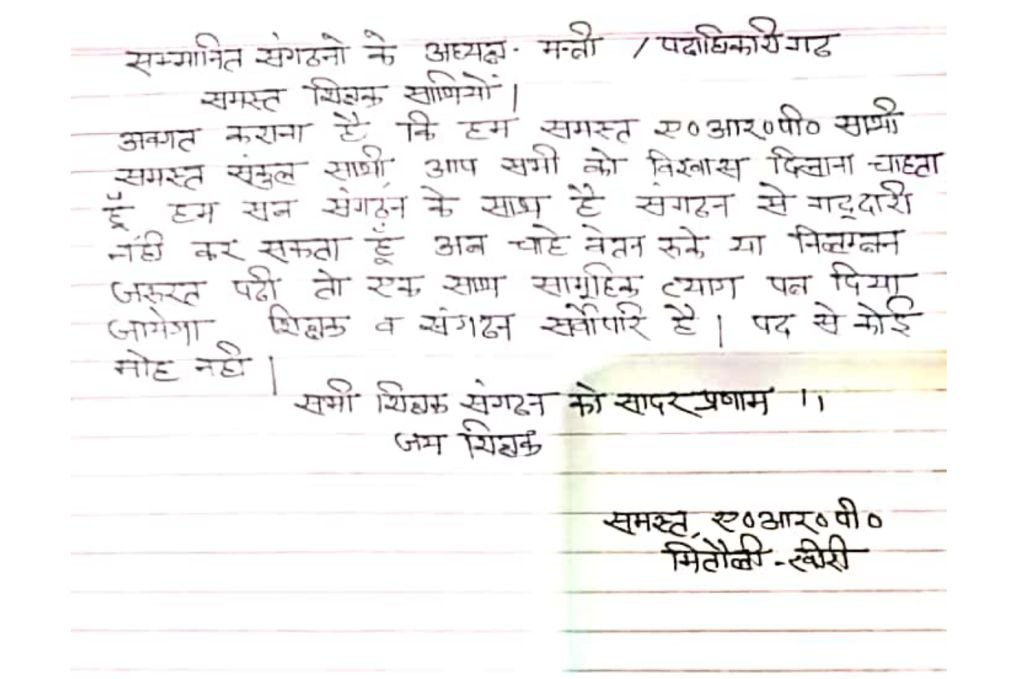 सम्मानित संगठनो के अध्यक्ष- मन्त्री / पदाधिकारी गढ
समस्त शिक्षक साथियों |
अवगत कराना है कि हम समस्त ए०आर०पी० साथी
समस्त संकुल साथी आप सभी को विश्वास दिलाना चाहता
हूँ हम सब संगठन के साथ है संगठन से गद्दारी
नही कर सकता हूँ अब चाहे वेतन रुके या निलम्बन
जरूरत पढी तो एक साथ सामूहिक त्याग पत्र दिया
जायेगा शिक्षक व संगठन सर्वोपरि है | पद से कोई
मोह नही |
सभी शिक्षक संगठन को सादर प्रणाम ।।
जय शिक्षक
समस्त, ए०आर०पी०
मितौली - खीरी